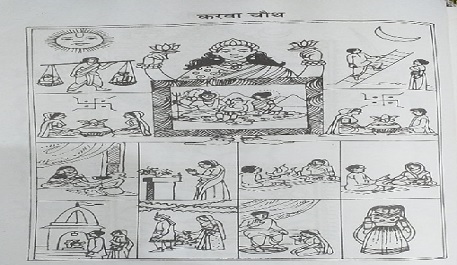 करवा चौथ